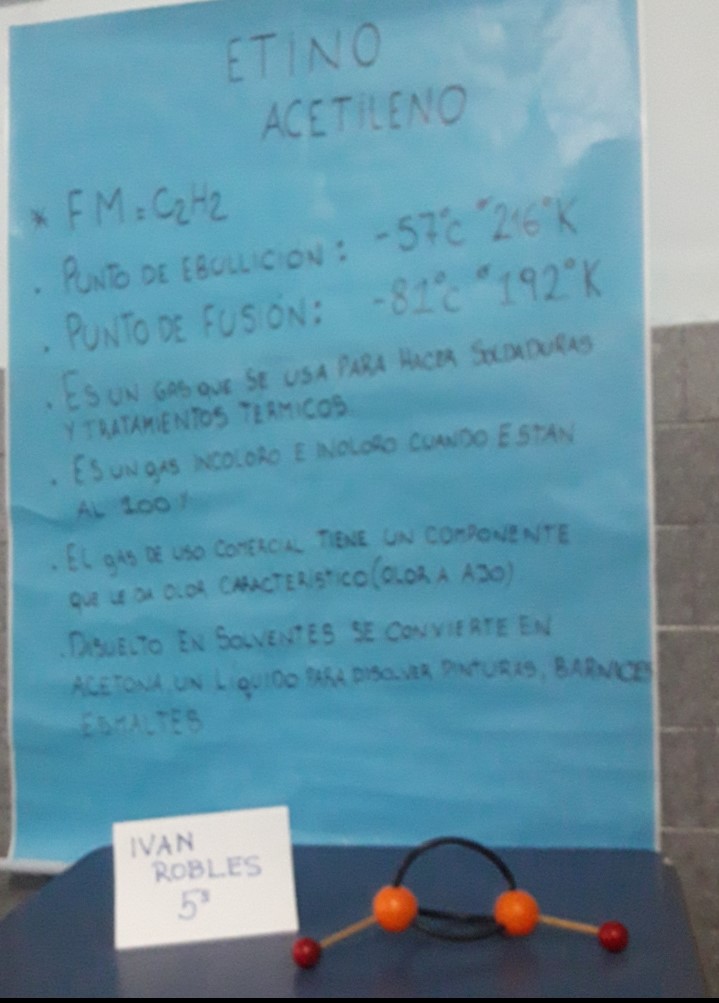 ETINO
ACETILENO
* FM = C2H2
. PUNTO DE EBULLICION : -57°C " 216°K
. PUNTO DE FUSIÓN : -81°C " 192°K
. ES UN GAS QUE SE USA PARA HACER SOLDADURAS
Y TRATAMIENTOS TERMICOS
. ES UN gAS INCOLORO E INOLORO CUANDO ESTAN
AL 100
. EL gAS DE USO COMERCIAL TIENE UN COMPONENTE
QUE LE DA OLOR CARACTERISTICO (OLOR A AJO)
. DISUELTO EN SOLVENTES SE CONVIERTE EN
ACETONA UN LíqUIDO PARA DISOLVER PINTURAS, BARNICES
ESMALTES
IVAN
ROBLES
5°